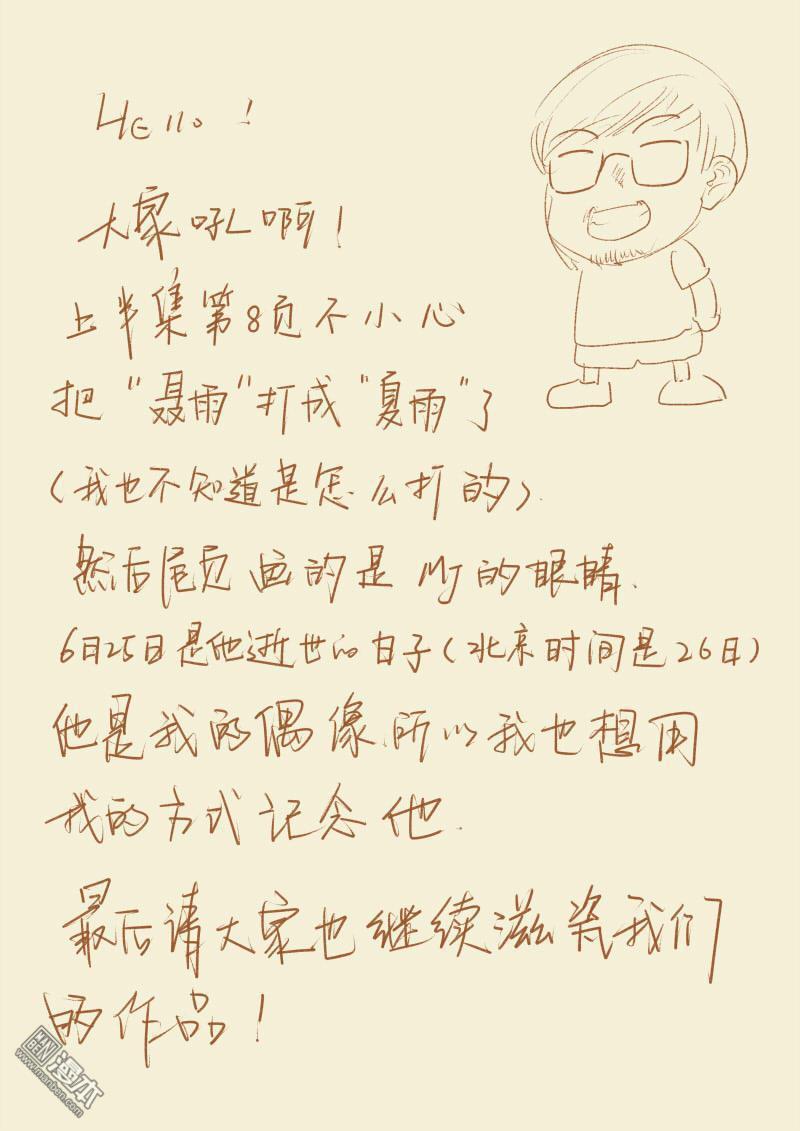 Hello!
大家吼啊!
上半集第8页不小心
把“聂雨”打成“夏雨”了
(我也不知道是怎么打的).
然后尾页画的是MJ的眼睛.
6月25日是他逝世的日子(北京时间是26日)
他是我的偶像.所以我也想用
我的方式记念他.
最后请大家也继续滋瓷我们
的作品!
MAN
BEN
漫本
www.manben.com